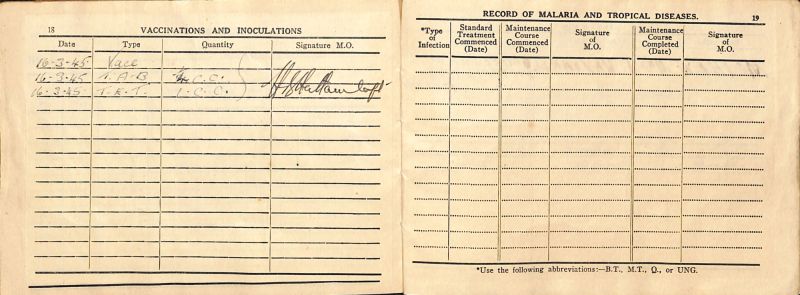 18 VACCINATIONS AND INOCULATIONS
Date Type Quantity Signature M.O.
16-3-45 Vacc
16-3-45 T.A.B. C.C.
16-3-45 T.E.T. 1 C.C.
RECORD OF MALARIA AND TROPICAL DISEASES. 19
*Type of Infection
Standard Treatment Commenced (Date)
Maintenance Course Commenced (Date)
Signature of M.O.
Maintenance Course Completed (Date)
Signature of M.O.
*Use the following abbreviations:—B.T., M.T., Q., or UNG.